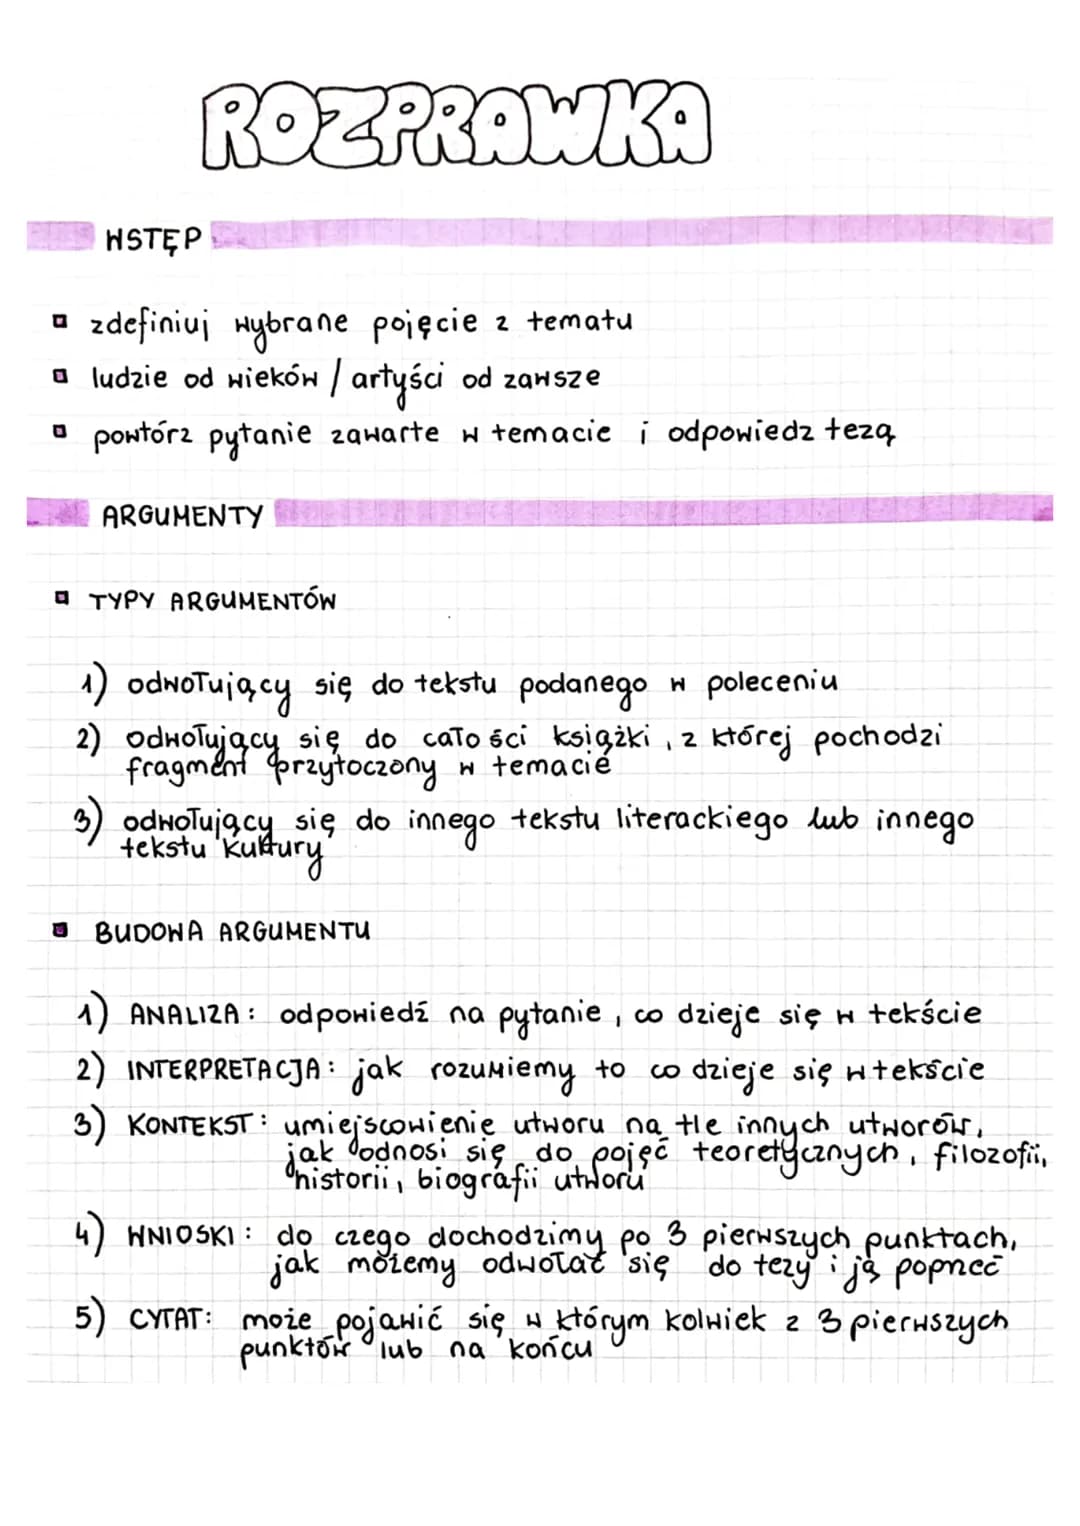 ROZPRAWKA
WSTĘP
zdefiniuj wybrane pojęcie z tematu
ludzie od wieków / artyści od zawsze
powtórz pytanie zawarte w temacie i odpowiedz tezą
ARGUMENTY
TYPY ARGUMENTÓW
1) odwołujący się do tekstu podanego w poleceniu
2) odwołujący się do całości książki, z której pochodzi
fragment przytoczony w temacie
3) odwołujący się do innego tekstu literackiego lub innego
tekstu kultury
BUDOWA ARGUMENTU
1) ANALIZA: odpowiedź na pytanie, co dzieje się w tekście
2) INTERPRETACJA: jak rozumiemy to co dzieje się w tekście
3) KONTEKST: umiejscowienie utworu na tle innych utworów,
jak odnosi się do pojęć teoretycznych, filozofii,
historii, biografii utworu
4) WNIOSKI: do czego dochodzimy po 3 pierwszych punktach,
jak możemy odwołać się do tezy i ją poprzeć
5) CYTAT: może pojawić się w którym kolwiek z 3 pierwszych
punktów lub na końcu